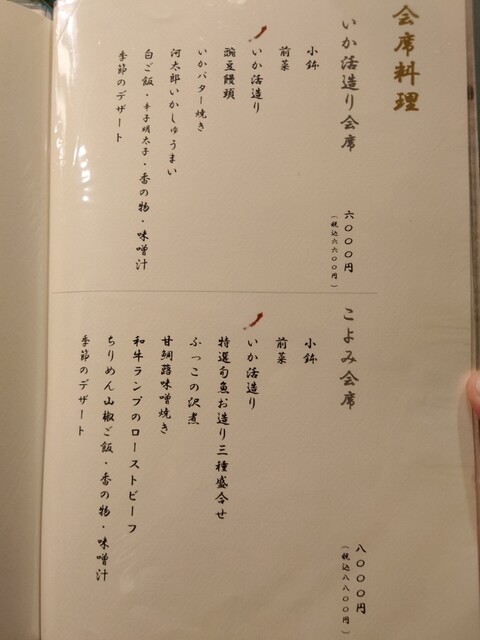 会席料理
いか活造り会席
六〇〇〇円
(税込六六〇〇円)
小鉢
前菜
いか活造り
豌豆饅頭
いかバター焼き
河太郎いかしゅうまい
白ご飯・辛子明太子・香の物・味噌汁
季節のデザート
こよみ会席
八〇〇〇円
(税込八八〇〇円)
小鉢
前菜
いか活造り
特選旬魚お造り三種盛合せ
ふっこの沢煮
甘鯛蕗味噌焼き
和牛ランプのローストビーフ
ちりめん山椒ご飯・香の物・味噌汁
季節のデザート